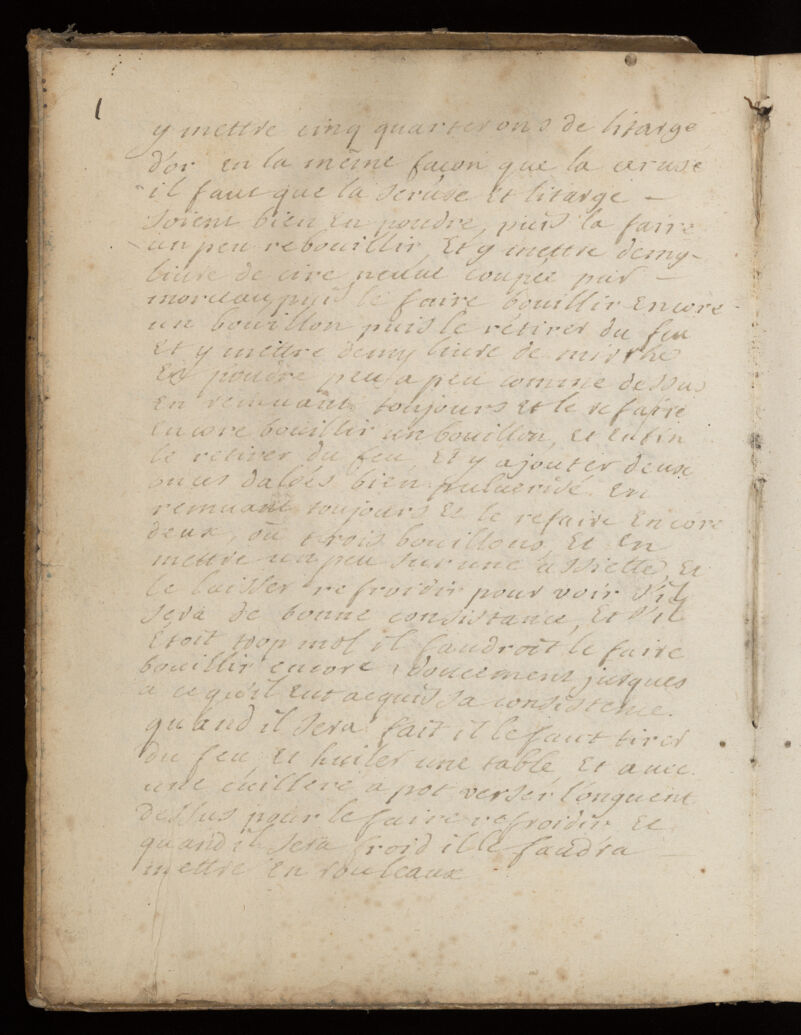 1
y mettre cinq quarterons de litarge
d'or en la méme facon que la ceruse
il faut que la seruse et litarge
soient bien en poudre, puis la faire
un peu rebouillir, Et y mettre demy-
liure de cire neuue coupée par
morceau, puis le faire bouillir Encore
un bouillon puis le retirer du feu
et y mettre demy liure de mirrhe
En poudre peu a peu comme dessus
en remuant toujours et le refaire
encore bouillir un bouillon, et enfin
le retirer du feu Et y ajouter deux
onces daloés bien puluerisé en
remuant toujours et le refaire Encore
deux, ou trois bouillons, Et En
mettre un peu sur une assiette, Et
le laisser refroidir pour voir s'il
sera de bonne consistance, Et s'il
Etoit trop mol il faudroit le faire
bouillir encore doucement jusques
a ce qu'il eut acquis sa consistence.
quand il sera fait il le faut tirer
du feu, et huiler une table, Et auec
une cuillere a pot verser l'onguent
dessus pour le faire refroidir Et
quand il sera froid il le faudra
mettre en rouleaux